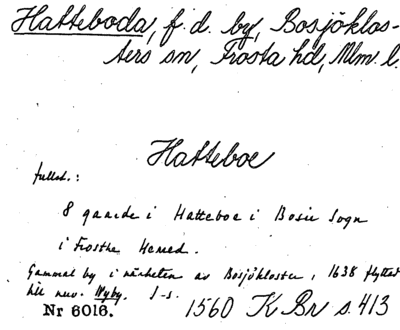 Hatteboda, f.d. by, Bosjöklos-
ters sn, Frosta hd, Mlm. l.
Hatteboe
fullst.:
8 gaarde i Hatteboe i Bosie Sogn
i Frosthe Herred.
Gammal by i närheten av Bosjökloster, 1638 flyttad
till nuv. Nyby. J-s.
Nr 6016.
1560 K Br s. 413